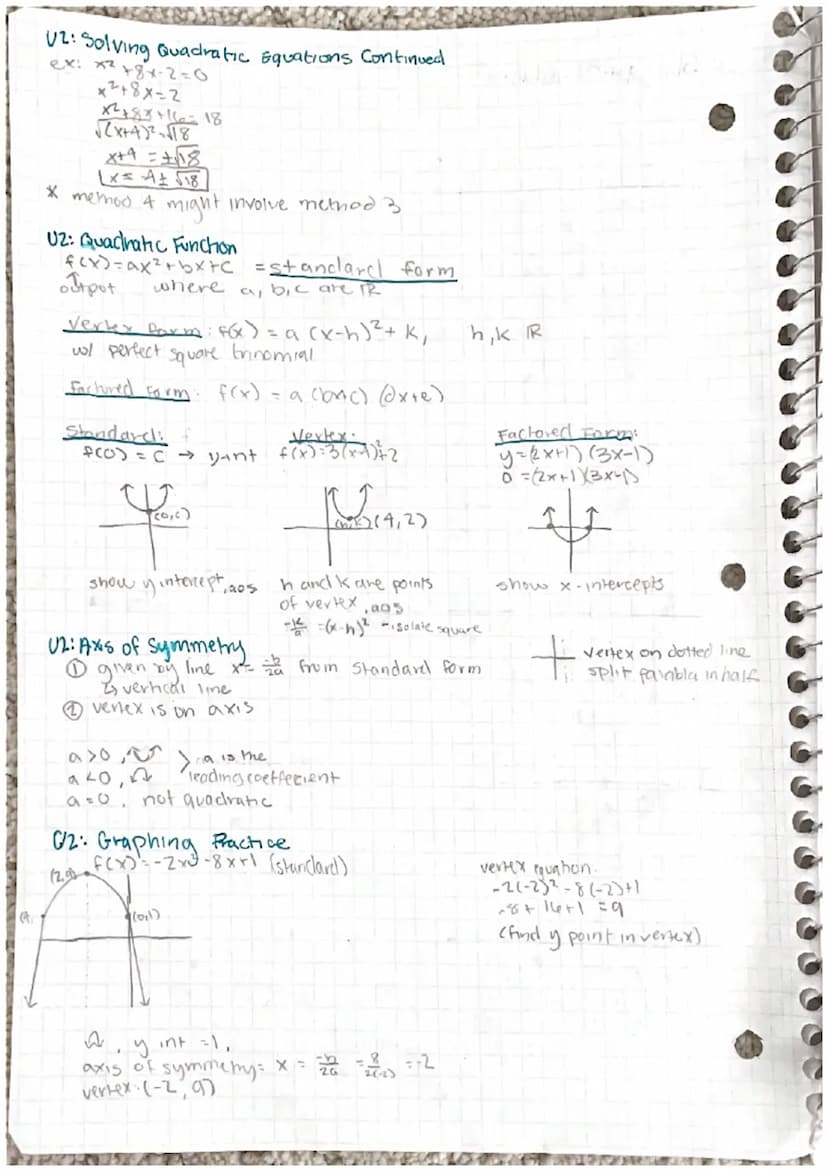 U2: Solving Quadratic Equations Continued
ex: x² + 8x - 2 = 0
x² + 8x = 2
x² + 8x + 16 = 18
√(x+4)² = √18
x+4 = ±√18
x = -4 ± √18
* method 4 might involve method 3
U2: Quadratic Function
f(x) = ax² + bx + c = standard form
output where a, b, c are ℝ
Vertex Form: f(x) = a (x-h)² + k, h, k ℝ
w/ perfect square trinomial
Factored Form: f(x) = a (bx+c) (dx+e)
Standard: Vertex: Factored Form:
f(0) = c → y-int f(x) = 3(x-4)²+2 y = (2x+1) (3x-1)
0 = (2x+1)(3x-1)
(0,c) (h,k) (4,2)
show y intercept, aos h and k are points show x-intercepts
of vertex, aos
-k/a = (x-h)² - isolate square
U2: Axis of Symmetry
① given by line x = -b/2a from standard form
↳ vertical line
② vertex is on axis
vertex on dotted line
split parabla in half
a > 0, > a is the
a < 0, leading coeffecient
a = 0, not quadratic
U2: Graphing Practice
f(x) = -2x² - 8x + 1 (standard)
(2,9)
(0,1)
vertex equation.
-2(-2)² - 8(-2) + 1
-8 + 16 + 1 = 9
(find y point in vertex)
, y int = 1,
axis of symmetry = x = -b/2a = 8/2(-2) = -2
vertex: (-2, 9)